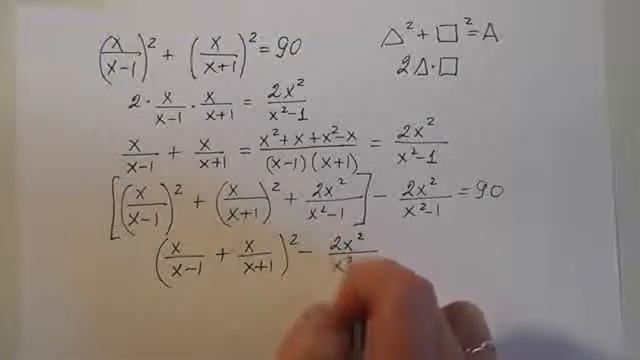 (x/(x-1))² + (x/(x+1))² = 90
△² + □² = A
2△·□
2 · x/(x-1) · x/(x+1) = 2x²/(x²-1)
x/(x-1) + x/(x+1) = (x²+x+x²-x)/((x-1)(x+1)) = 2x²/(x²-1)
[(x/(x-1))² + (x/(x+1))² + 2x²/(x²-1)] - 2x²/(x²-1) = 90
(x/(x-1) + x/(x+1))² - 2x²/x²